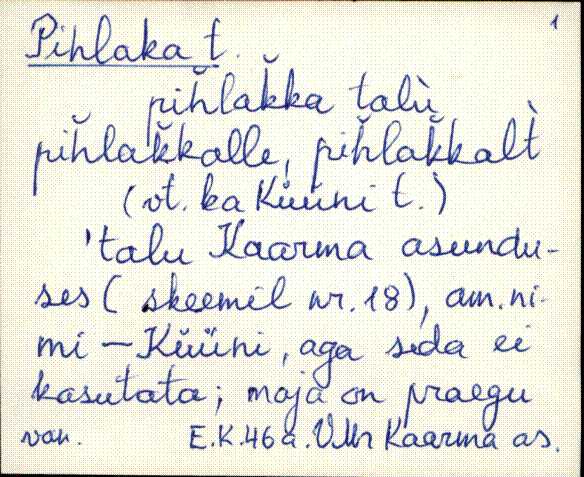 1
Pihlaka t.
pĭhlak̆ka talù,
pĭhlak̆kalle, pĭhlak̆kalt̀
(vt. ka Küüni t.)
'talu Kaarma asundu-
ses (skeemil nr. 18), am. ni-
mi — Küüni, aga seda ei
kasutata; maja on praegu
van. E.K. 46 a. VMr Kaarma as.